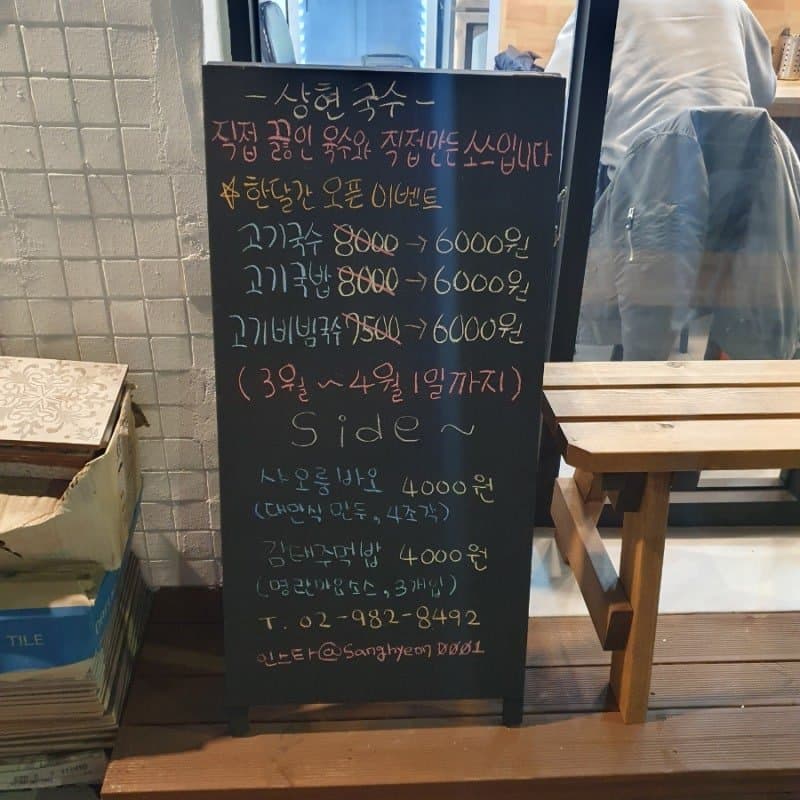 - 상현 국수 -
직접 끓인 육수와 직접만든 소스입니다
☆한달간 오픈 이벤트
고기국수 8000→6000원
고기국밥 8000→6000원
고기비빔국수 7500→6000원
(3월~4월1일까지)
Side~
샤오룽바오 4000원
(대만식 만두, 4조각)
김태주먹밥 4000원
(명란마요소스, 3개입)
T. 02-982-8492
인스타@Sanghyeon0001
TILE